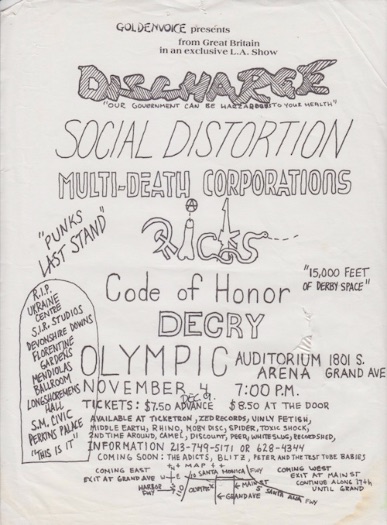 GOLDENVOICE presents
from Great Britain
in an exclusive L.A. Show
DISCHARGE
"OUR GOVERNMENT CAN BE HARZARDEST TO YOUR HEALTH"
SOCIAL DISTORTION
MULTI-DEATH CORPORATIONS
"PUNKS
LAST STAND"
Code of Honor
"15,000 FEET
OF DERBY SPACE"
DECRY
R.I.P.
UKRAINE
CENTRE
S.I.R. STUDIOS
DEVONSHIRE DOWNS
FLORENTINE
GARDENS
MENDIOLAS
BALLROOM
LONGSHOREMENS
HALL
S.M. CIVIC
PERKINS PALACE
"THIS IS IT"
OLYMPIC AUDITORIUM 1801 S.
ARENA GRAND AVE
NOVEMBER 4 7:00 P.M.
DEC 9
TICKETS: $7.50 ADVANCE $8.50 AT THE DOOR
AVAILABLE AT TICKETRON, ZED RECORDS, VINLY FETISH,
MIDDLE EARTH, RHINO, MOBY DISC, SPIDER, TOXIC SHOCK,
2ND TIME AROUND, CAMEL, DISCOUNT, PEER, WHITE SLUG, RECORDSHED,
INFORMATION 213-749-5171 OR 628-4344
COMING SOON: THE ADICTS, BLITZ, PETER AND THE TEST TUBE BABIES
COMING EAST
EXIT AT GRAND AVE
MAP
N
W E
S
HARBOR
FWY
110
10 SANTA MONICA FWY
OLYMPIC
MAIN ST
GRAND AVE
SANTA ANA FWY
COMING WEST
EXIT AT MAIN ST
CONTINUE ALONG 17th
UNTIL GRAND